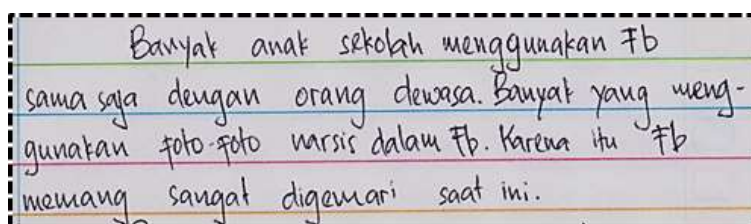 Banyak anak sekolah menggunakan Fb
sama saja dengan orang dewasa. Banyak yang meng-
gunakan foto-foto narsis dalam Fb. Karena itu Fb
memang sangat digemari saat ini.